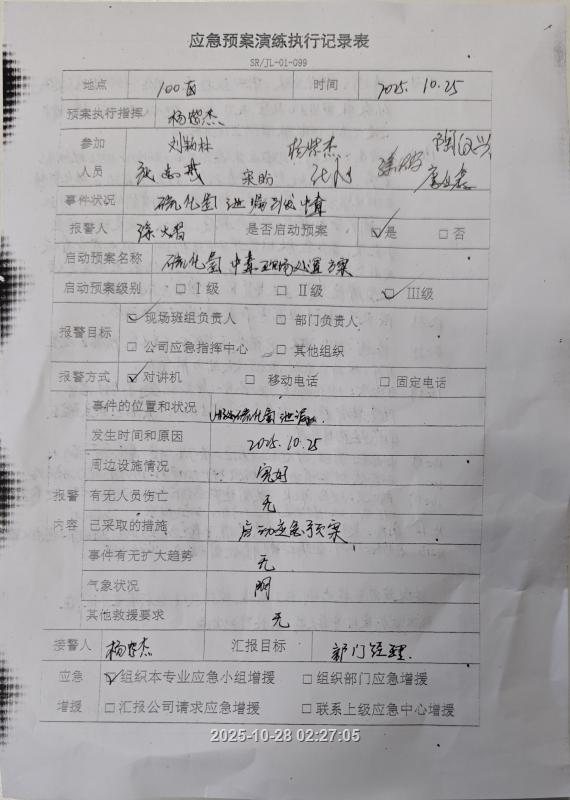 应急预案演练执行记录表
SR/JL-01-099
地点 100区 时间 2025. 10. 25
预案执行指挥 杨紫杰
参加 刘颖林 杨紫杰
人员
事件状况 硫化氢泄漏引发中毒
报警人 是否启动预案 ☑是 □否
启动预案名称 硫化氢中毒现场处置方案
启动预案级别 □Ⅰ级 □Ⅱ级 ☑Ⅲ级
报警目标 ☑现场班组负责人 □部门负责人
□公司应急指挥中心 □其他组织
报警方式 ☑对讲机 □移动电话 □固定电话
事件的位置和状况 硫化氢泄漏
发生时间和原因 2025. 10. 25
周边设施情况 完好
报警 有无人员伤亡 无
内容 已采取的措施 启动应急预案
事件有无扩大趋势 无
气象状况 阴
其他救援要求 无
接警人 杨紫杰 汇报目标 部门经理.
应急 ☑组织本专业应急小组增援 □组织部门应急增援
增援 □汇报公司请求应急增援 □联系上级应急中心增援
2025-10-28 02:27:05